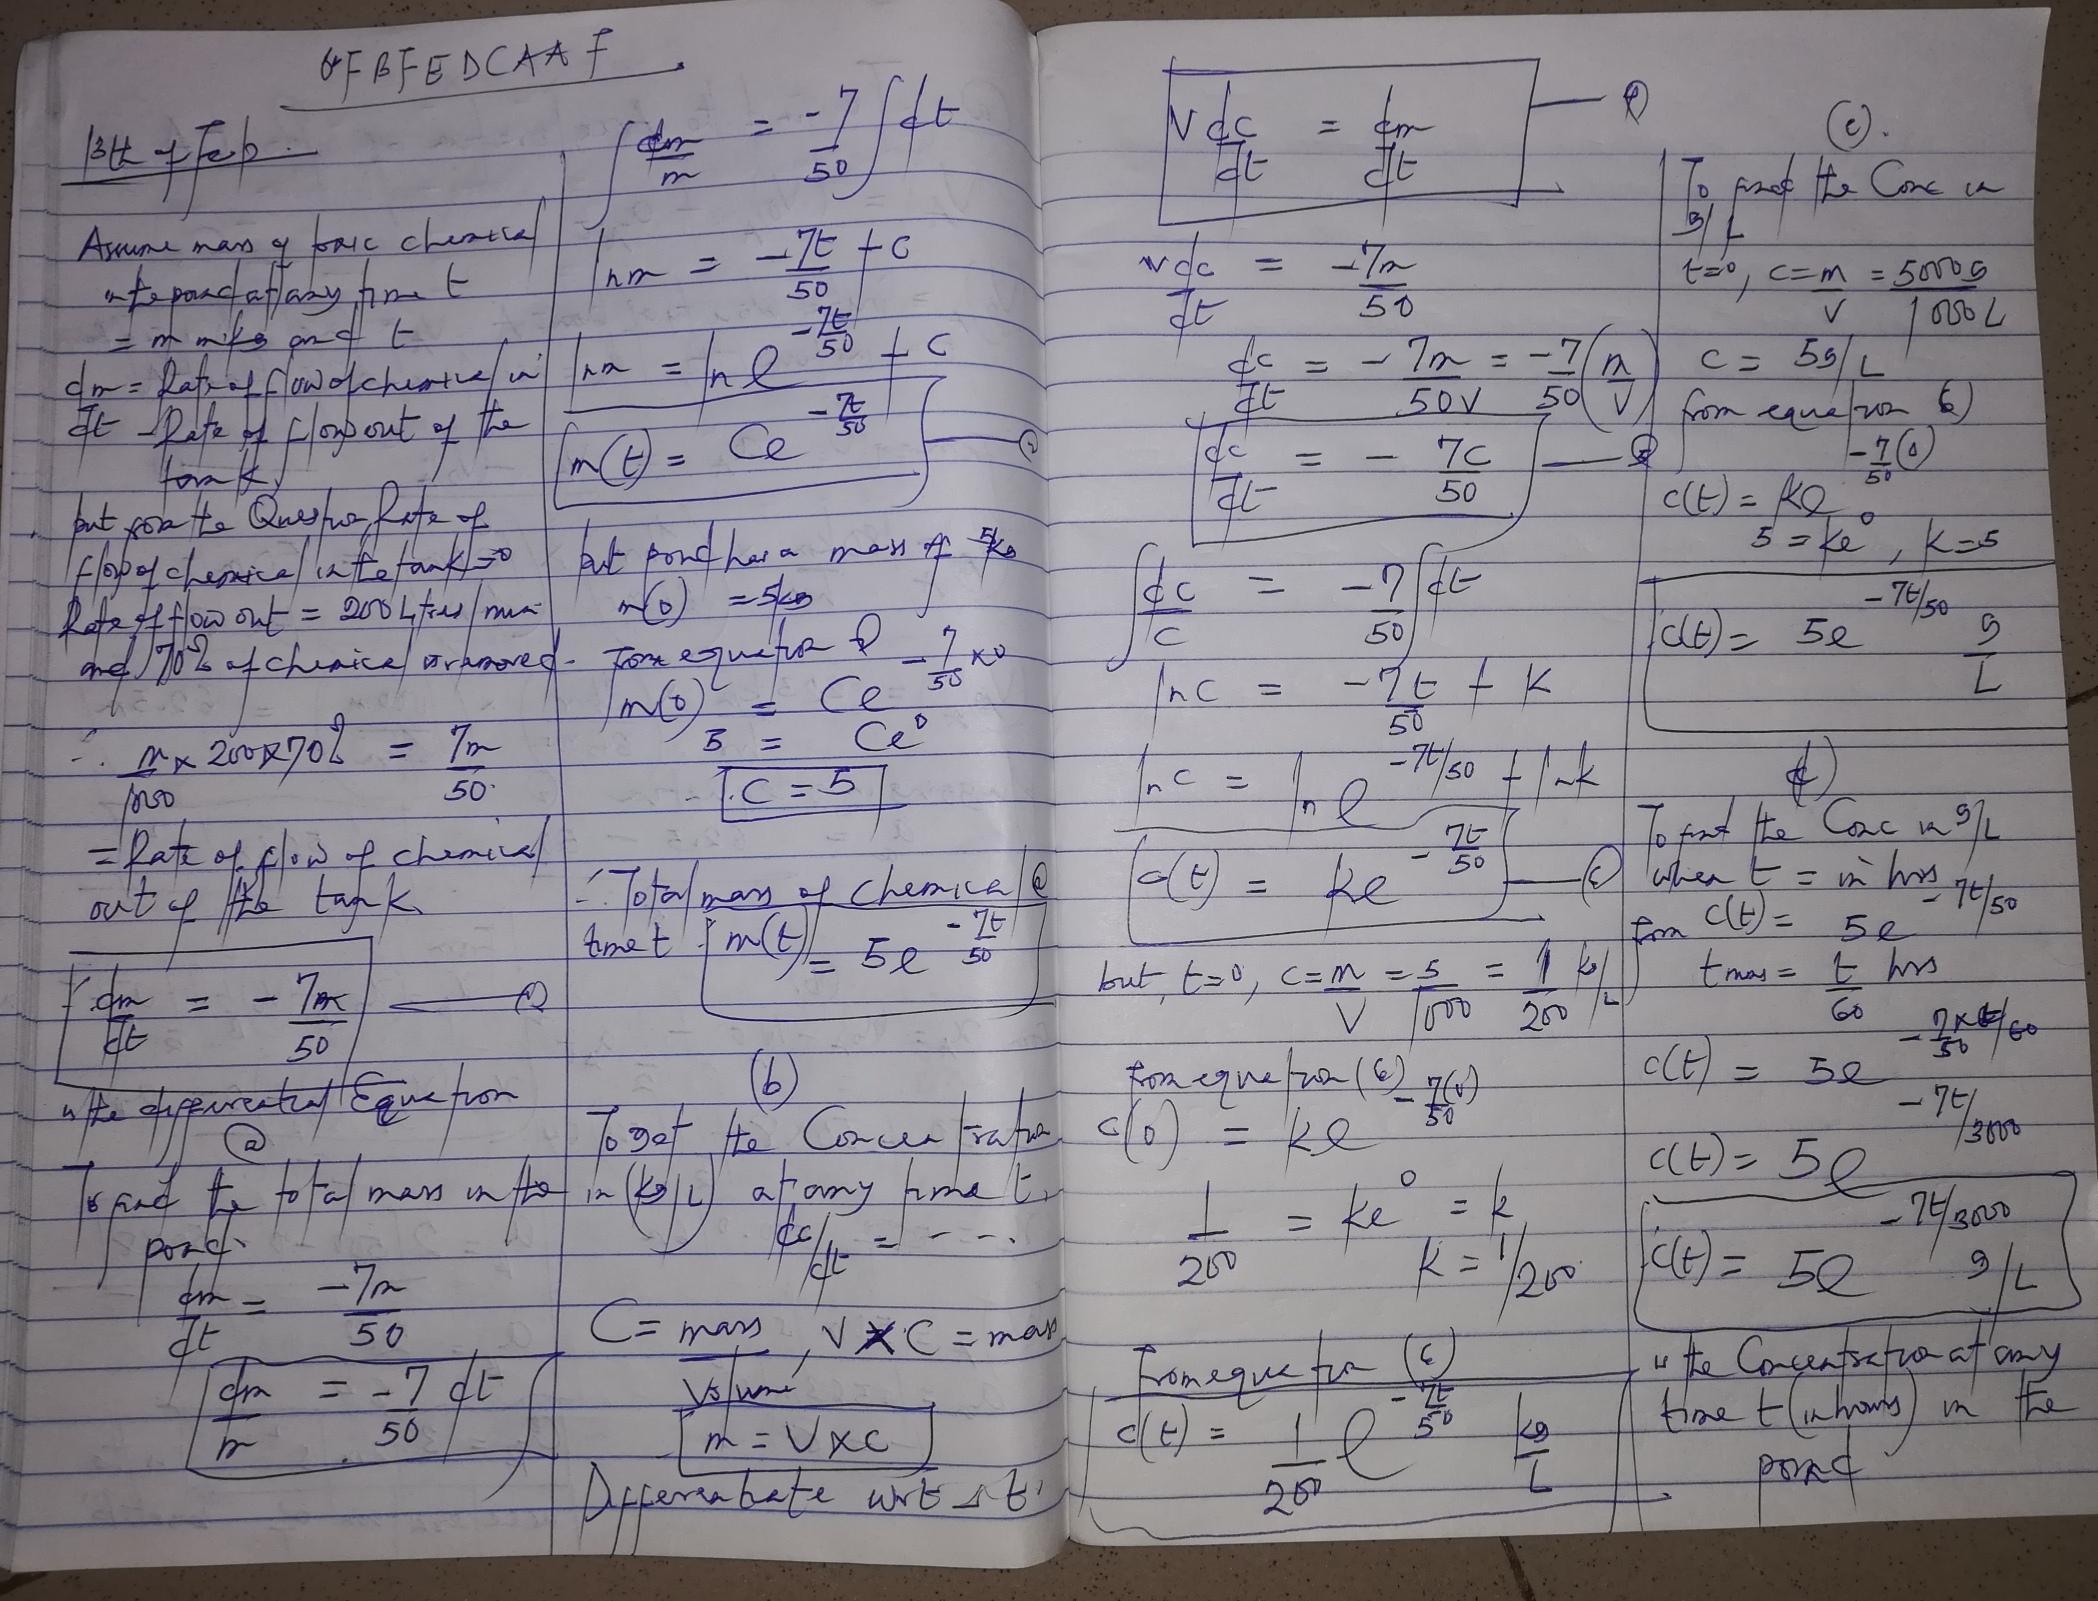 GFBFEDCAAF
13th of Feb.
Assume mass of toxic chemical
in te pond at any time t
= m in kg and t
dm/dt = Rate of flow of chemical in
- Rate of flow out of the
tank
but from the Question, Rate of
flow of chemical in te tank = 0
Rate of flow out = 200 Litres/min
and 70% of chemical is removed.
∴ m/1000 x 200 x 70% = 7m/50
= Rate of flow of chemical
out of the tank
dm/dt = - 7m/50
is the differential Equation
(a)
To find the total mass in the
pond.
dm/dt = -7m/50
dm/m = -7/50 dt
∫ dm/m = -7/50 ∫ dt
ln m = -7t/50 + C
ln m = ln e^(-7t/50) + C
m(t) = Ce^(-7t/50)
but pond has a mass of 5kg
m(0) = 5kg
From equation
m(0) = Ce^(-7/50 x 0)
5 = Ce^0
∴ C = 5
∴ Total mass of chemical @
time t m(t) = 5e^(-7t/50)
(b)
To get the Concentration
in (kg/L) at any time t,
dc/dt = - - -.
C = mass/Volume, V x C = mass
m = V x C
Differentiate wrt t.
V dc/dt = dm/dt
V dc/dt = -7m/50
dc/dt = - 7m/50V = -7/50 (m/V)
dc/dt = - 7C/50
∫ dc/C = -7/50 ∫ dt
ln C = -7t/50 + K
ln C = ln e^(-7t/50) + ln k
c(t) = ke^(-7t/50)
but, t=0, C = m/V = 5/1000 = 1/200 kg/L
From equation (6)
c(0) = ke^(-7(0)/50)
1/200 = ke^0 = k
k = 1/200
From equation (6)
c(t) = 1/200 e^(-7t/50) kg/L
(c).
To find the Conc in
g/L
t=0, C = m/V = 5000g/1000L
C = 5g/L
From equation 6)
c(t) = ke^(-7/50(0))
5 = ke^0, k = 5
c(t) = 5e^(-7t/50) g/L
d)
To find the Conc in g/L
when t = in hrs
from c(t) = 5e^(-7t/50)
t mins = t/60 hrs
c(t) = 5e^(-7/50 x t/60)
c(t) = 5e^(-7t/3000)
c(t) = 5e^(-7t/3000) g/L
is the Concentration at any
time t (in hours) in the
pond